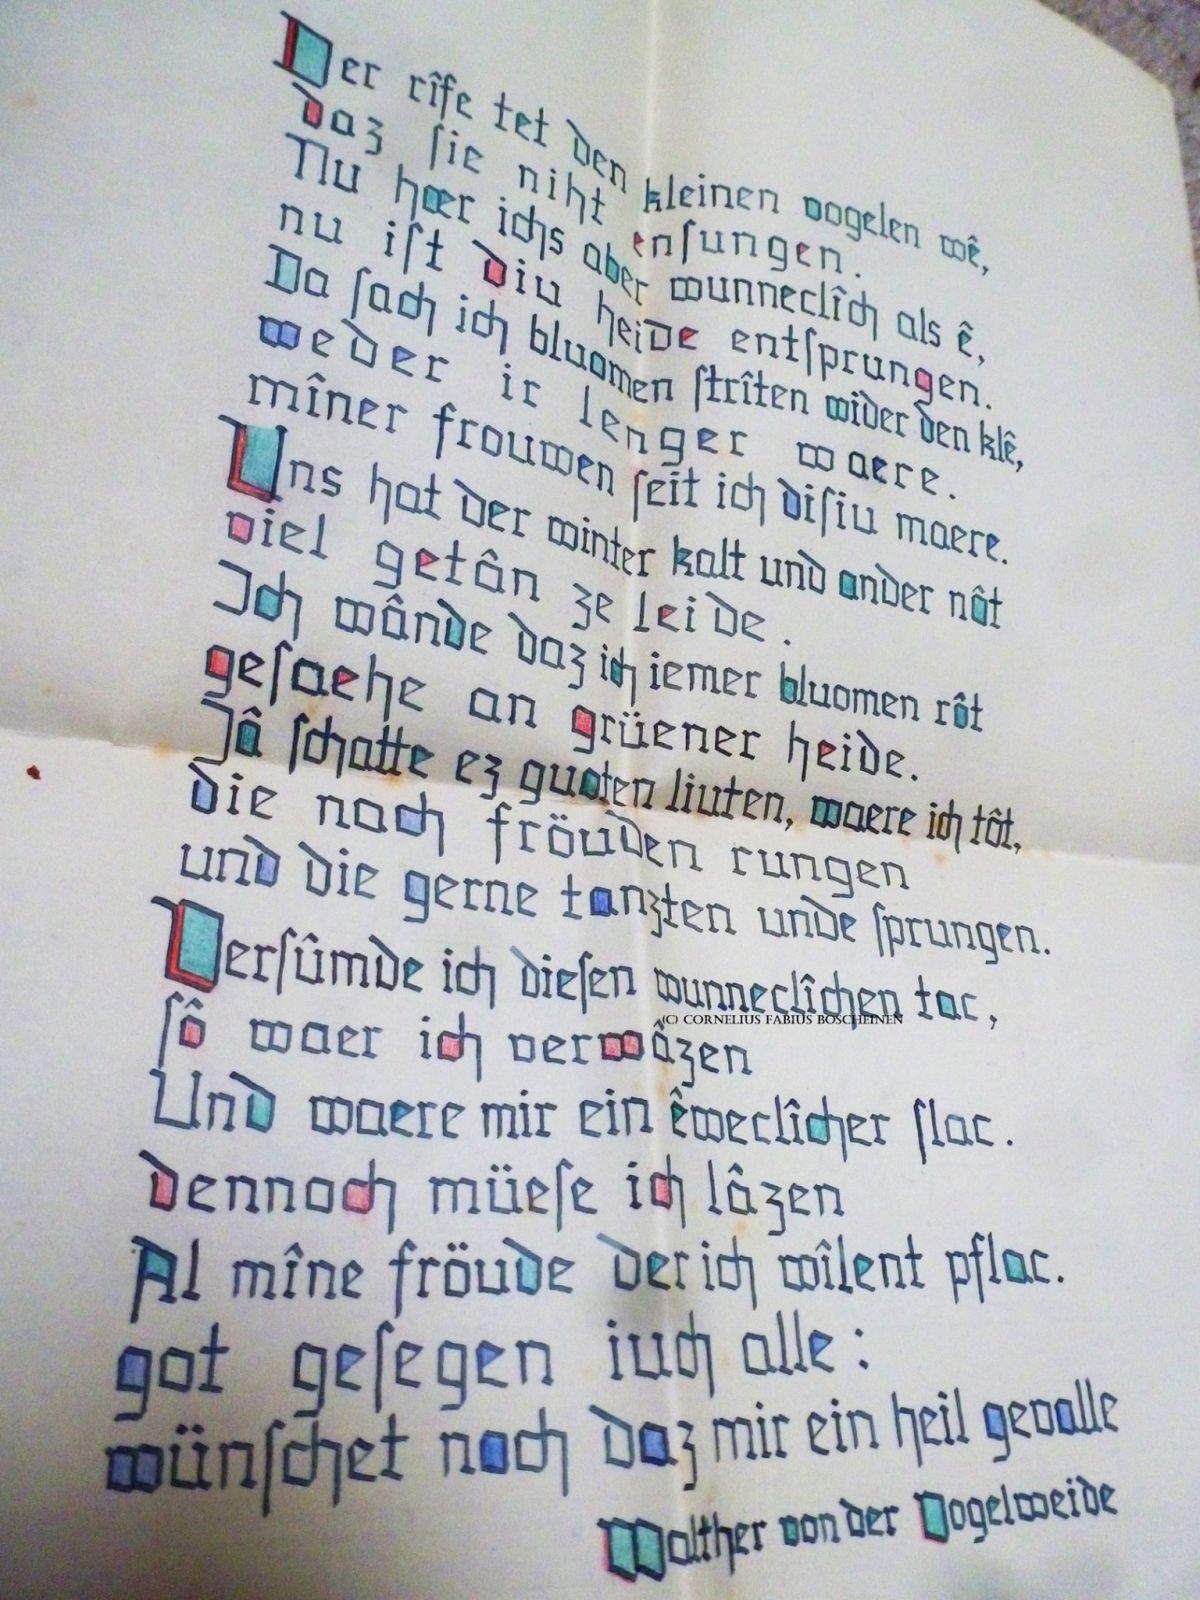 Der rîfe tet den kleinen vogelen wê,
daz ſie niht enſungen.
Nu hœr ichs aber wunneclîch als ê,
nu iſt diu heide entſprungen.
Da ſach ich bluomen ſtrîten wider den klê,
weder ir lenger waere.
mîner frouwen ſeit ich diſiu maere.
Uns hat der winter kalt und ander nôt
viel getân ze leide.
Ich wânde daz ich iemer bluomen rôt
geſaehe an grüener heide.
Jâ ſchatte ez guoten liuten, waere ich tôt,
die nach fröuden rungen
und die gerne tanzten unde ſprungen.
Verſûmde ich dieſen wunneclîchen tac,
(C) CORNELIUS FABIUS BOSCHEINEN
ſô waer ich verwâzen
Und waere mir ein êweclîcher ſlac.
dennoch müeſe ich lâzen
Al mîne fröude der ich wîlent pflac.
got geſegen iuch alle:
wünſchet noch daz mir ein heil gevalle
Walther von der Vogelweide